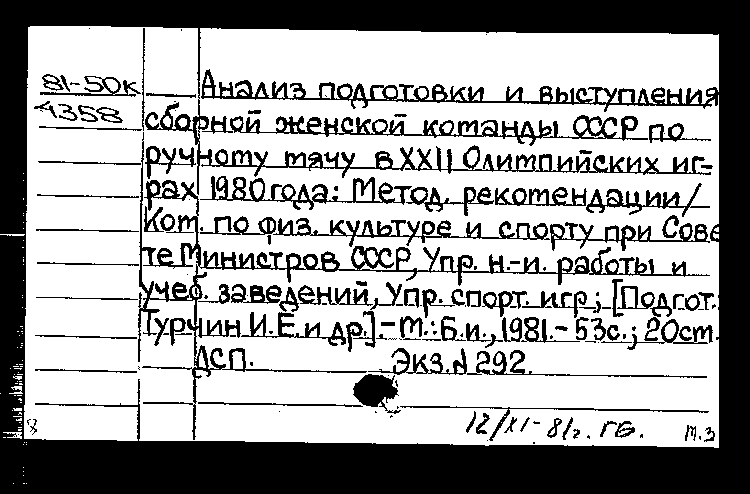 81-50к Анализ подготовки и выступления
4358 сборной женской команды СССР по
ручному мячу в XXII Олимпийских иг-
рах 1980 года: Метод. рекомендации/
Ком. по физ. культуре и спорту при Сове
те Министров СССР, Упр. н.-и. работы и
учеб. заведений, Упр. спорт. игр; [Подгот.:
Турчин И.Е. и др.].- М.: Б.и., 1981.- 53с.; 20см.
ДСП. Экз. № 292.
12/XI-81г. ГБ. м.з
8